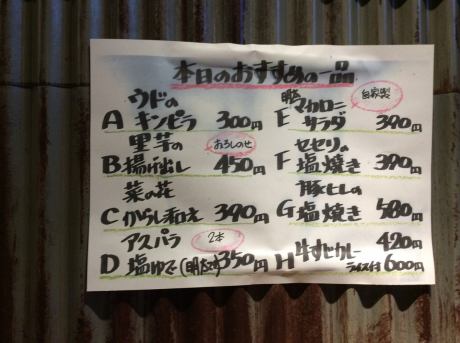 本日のおすすめの一品
ウドの
A キンピラ 300円
里芋の おろしのせ
B 揚げ出し 450円
菜の花
C からし和え 390円
アスパラ 2本
D 塩ゆで 350円
自家製
マカロニ
E サラダ 390円
セセリの
F 塩焼き 390円
豚ヒレの
G 塩焼き 580円
420円
H 牛すじカレー
ライス付 600円